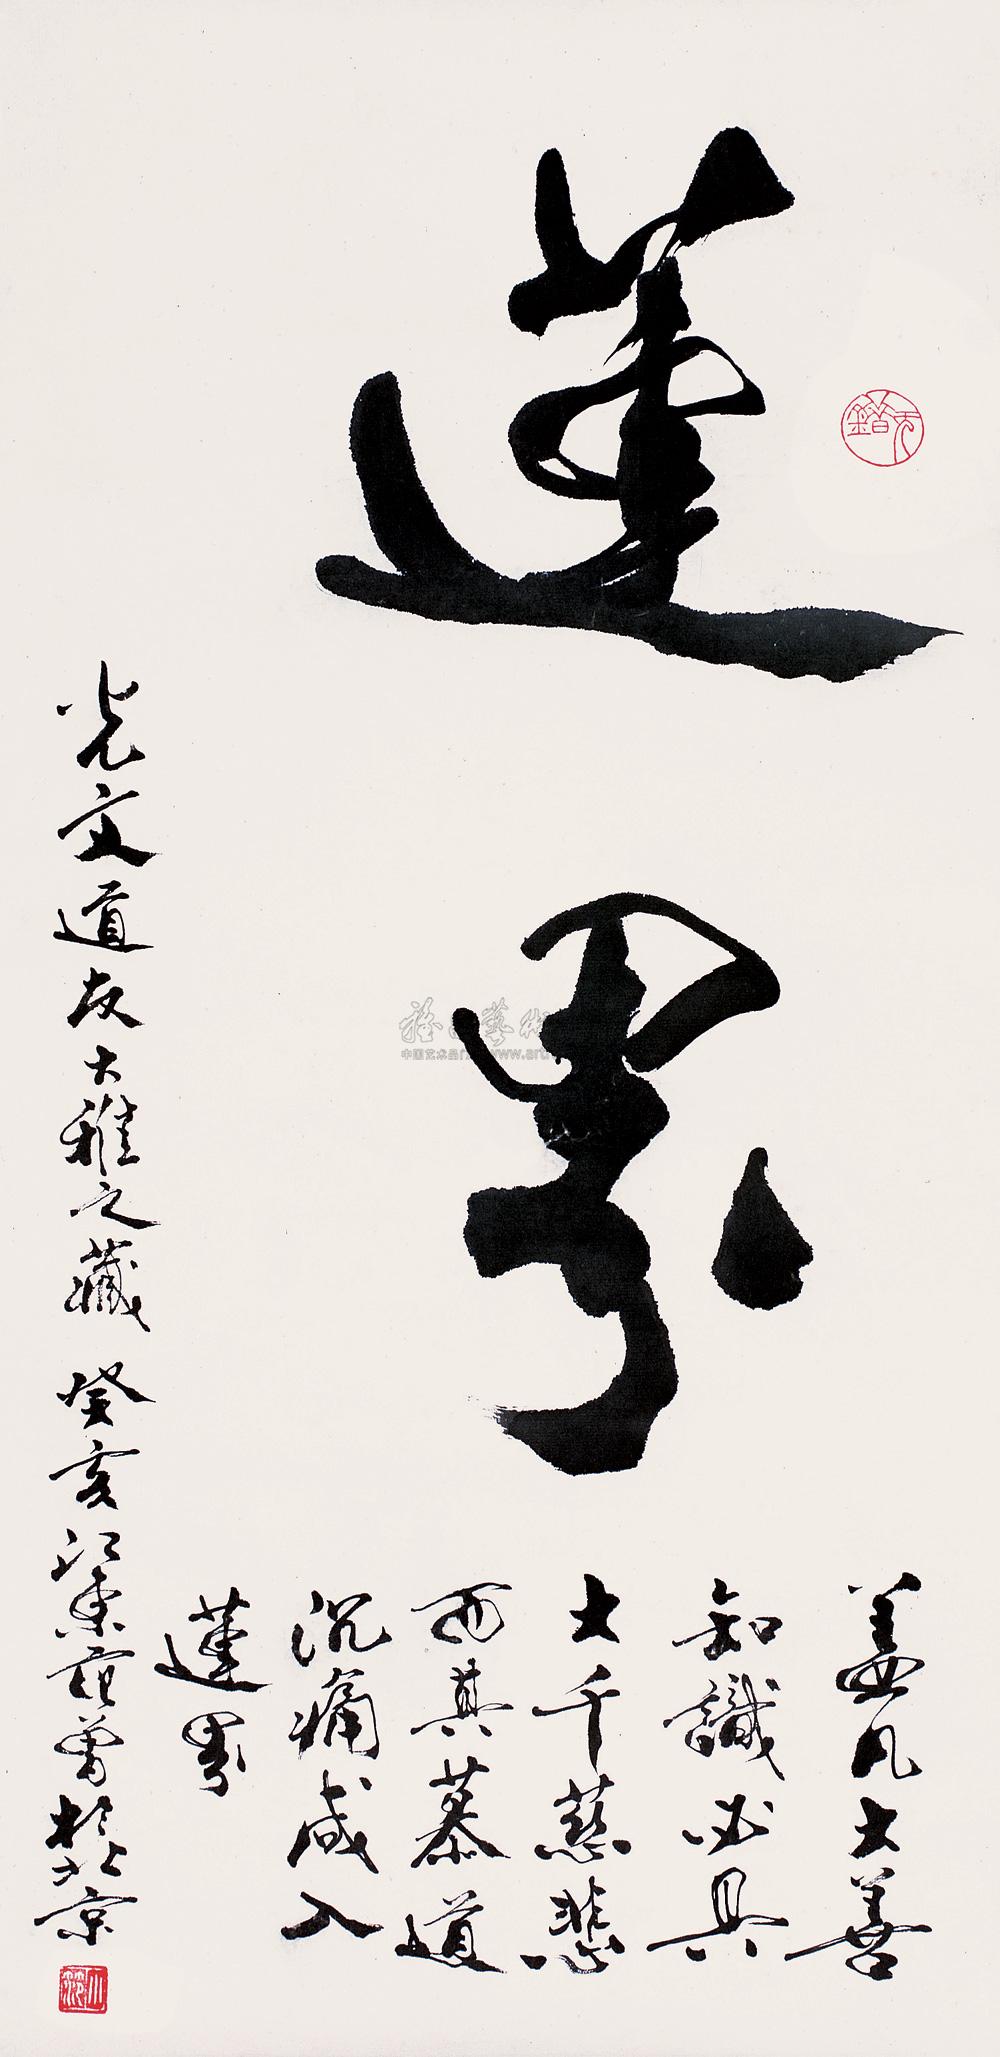 蓮界
蓋凡大善
知識必具
大千慈悲
而其慕道
沉痛咸入
蓮界
光文道友大雅之藏 癸亥江東范曾於北京